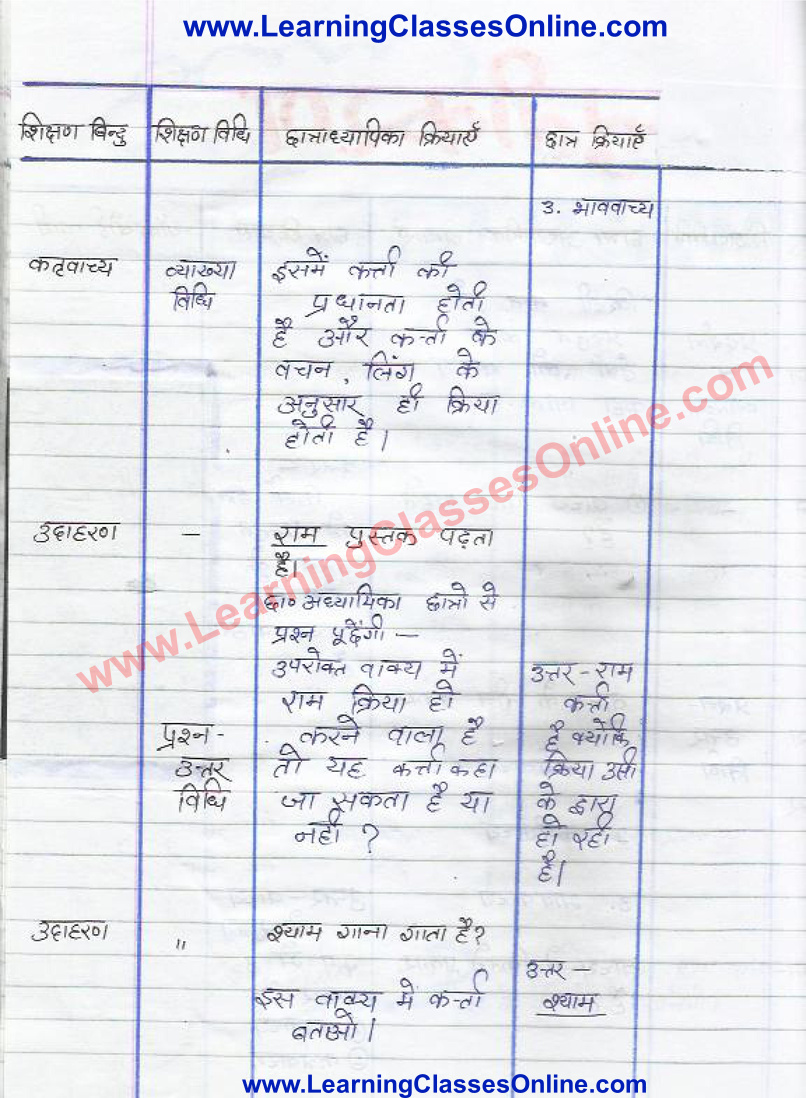 www.LearningClassesOnline.com
शिक्षण बिन्दु शिक्षण विधि छात्राध्यापिका क्रियाएँ छात्र क्रियाएँ
3. भाववाच्य
कतृवाच्य व्याख्या इसमें कर्त्ता की
विधि प्रधानता होती
है और कर्त्ता के
वचन, लिंग के
अनुसार ही क्रिया
होती है।
उदाहरण – राम पुस्तक पढ़ता
है।
छा० अध्यापिका छात्रो से
प्रश्न पूछेंगी –
उपरोक्त वाक्य में उत्तर - राम
राम क्रिया हो कर्त्ता
प्रश्न - करने वाला है है क्योंकि
उत्तर तो यह कर्त्ता कहा क्रिया उसी
विधि जा सकता है या के द्वारा
नहीं ? हो रही
है।
उदाहरण " श्याम गाना गाता है?
उत्तर –
इस वाक्य में कर्त्ता श्याम
बताओ।
www.LearningClassesOnline.com
www.LearningClassesOnline.com